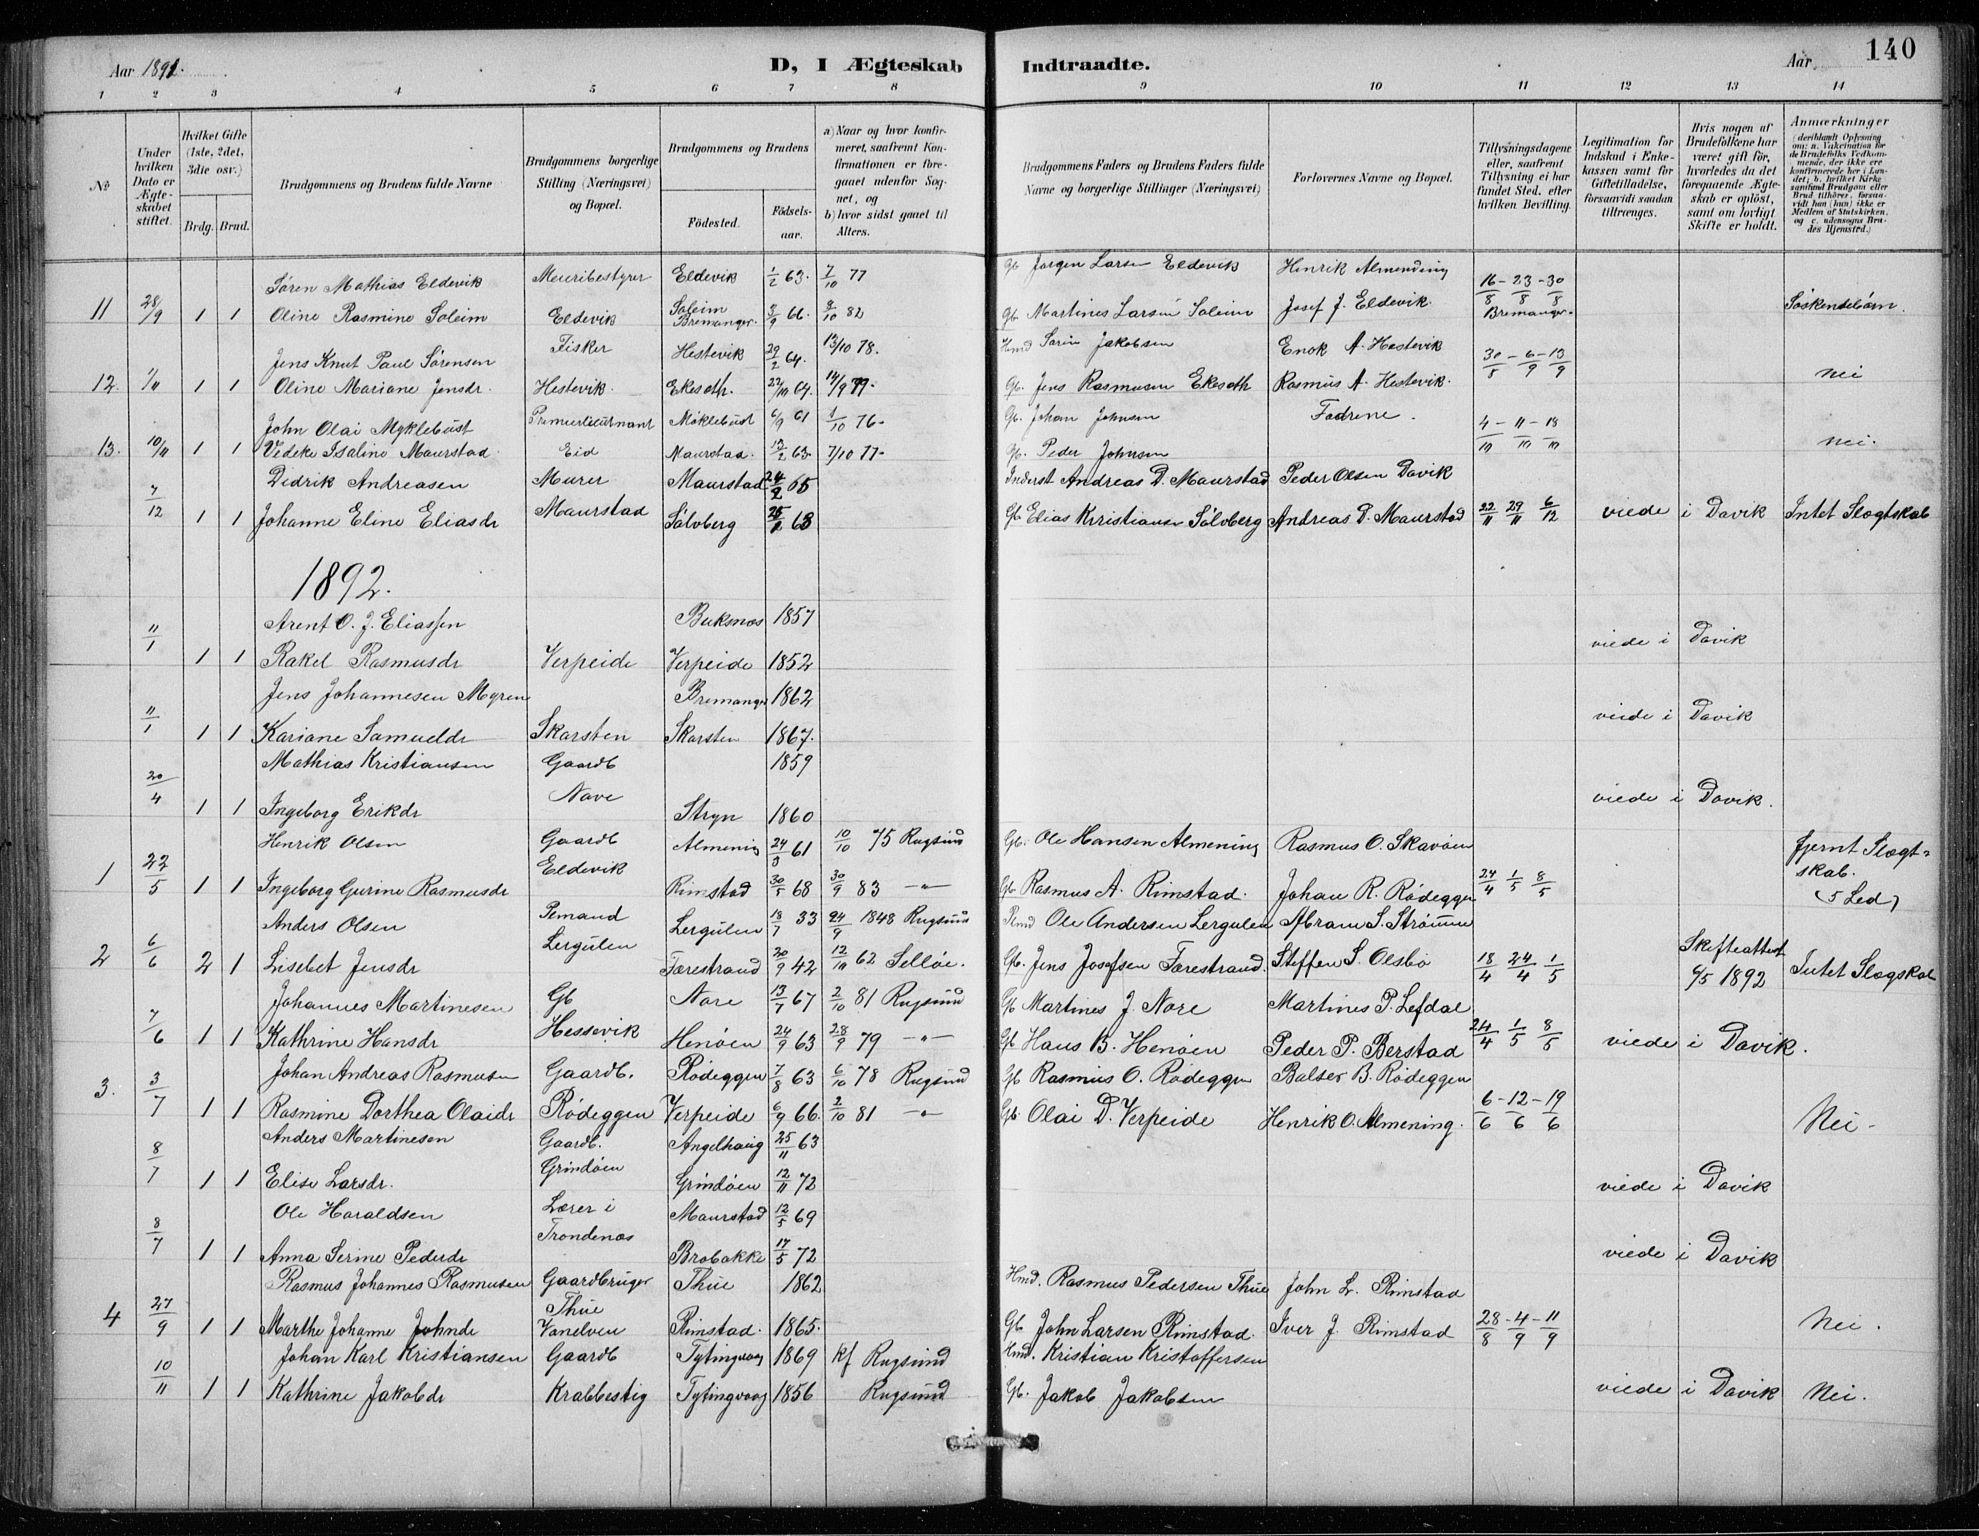 Aar 1891.
D, I Ægteskab Indtraadte.
Aar
140
1 2 3 4 5 6 7 8 9 10 11 12 13 14
No
Under hvilken Dato er Ægteskabet stiftet.
Hvilket Gifte (1ste, 2det, 3die osv.)
Brdg. Brud.
Brudgommens og Brudens fulde Navne
Brudgommens borgerlige Stilling (Næringsvei) og Bopæl.
Brudgommens og Brudens
Fødested.
Fødselsaar.
a) Naar og hvor konfirmeret, saafremt Konfirmationen er foregaaet udenfor Sognet, og
b) hvor sidst gaaet til Alters.
Brudgommens Faders og Brudens Faders fulde Navne og borgerlige Stillinger (Næringsvei)
Forlovernes Navne og Bopæl.
Tillysningsdagene eller, saafremt Tillysning ei har fundet Sted, efter hvilken Bevilling.
Legitimation for Indskud i Enkekassen samt for Giftetilladelse, forsaavidt saadan tiltrænges.
Hvis nogen af Brudefolkene har været gift før, hvorledes da det foregaaende Ægteskab er opløst, samt om lovligt Skifte er holdt.
Anmærkninger (deriblandt Oplysning om: a. Vakcination for de Brudefolks Vedkommende, der ikke ere konfirmerede her i Landet; b. hvilket Kirkesamfund Brudgom eller Brud tilhører, forsaavidt han (hun) ikke er Medlem af Statskirken, og c. udensogns Brudes Hjemsted.)
Søren Mathias Eldevik Meieribestyrer Eldevik 1/2 63. 7/10 77 Gb Jørgen Larsen Eldevik Henrik Almening 16/8 - 23/8 - 30/8
11 28/9 1 1 Oline Rasmine Soleim Eldevik Soleim Bremanger. 3/9 66. 8/10 82 Gb. Martines Larsen Soleim Josef J. Eldevik. Bremanger. Søskendebørn.
Jens Knut Paul Sørensen Fisker Hestevik 29/2 64. 13/10 78. Hmd Sørin Jakobsen Enok A. Hestevik 30/8 - 6/9 - 13/9
12. 1/11 1 1 Oline Mariane Jensdr. Hestevik. Ekeseth. 22/10 64. 14/9 79. Gb. Jens Rasmusen Ekeseth Rasmus A. Hestevik. nei
John Olai Myklebust Premierleutnant Møklebust 6/9 61 1/10 76. Gb. Johan Johnsen Fædrene. 4/10 - 11/10 - 18/10
13. 10/11 1 1 Vedeke Isaline Maurstad. Eid Maurstad. 12/2 63. 7/10 77. Gb. Peder Johnsen nei.
Didrik Andreasen Murer Maurstad 24/2 65 Inderst Andreas D. Maurstad Peder Olsen Davik
7/12 1 1 Johanne Eline Eliasdr Maurstad Sølvberg 25/1 68 Gb Elias Kristiansen Sølvberg Andreas P. Maurstad 22/11 29/11 6/12 viede i Davik Intet Slægtskab
1892.
Arent O. J. Eliassen Buksnæs 1857
11/1 1 1 Rakel Rasmusdr Verpeide Verpeide 1852 viede i Davik
Jens Johannesen Myren Bremanger 1862
11/1 1 1 Kariane Samueldr Skarsten Skarsten 1867. viede i Davik
Mathias Kristiansen Gaardb 1859
20/4 1 1 Ingeborg Erikdr Nave Stryn 1860 viede i Davik.
Henrik Olsen Gaardb Almening 24/3 61 10/10 75 Rugsund Gb. Ole Hansen Almening Rasmus O. Skavøen fjernt Slægtskab.
1 22/5 1 1 Ingeborg Gurine Rasmusdr Eldevik Rimstad 30/5 68 30/9 83 -"- Gb Rasmus A. Rimstad. Johan R. Rødeggen 24/4 1/5 8/5 (5 Led)
Anders Olsen Pemand Lergulen 18/7 33 24/9 1848 Rugsund Pmd Ole Andersen Lergulen Abram S. Strømme
2 6/6 2 1 Lisebet Jensdr Lergulen Færestrand 20/9 42 12/10 62 Selløe. Gb. Jens Josefsen Færestrand. Steffen S. Olsbø 18/4 24/4 1/5 Skifteattest 6/5 1892 Intet Slægskab
Johannes Martinesen Gb Nore 13/7 67 2/10 81 Rugsund Gb Martines J. Nore Martines P. Lefdal
7/6 1 1 Kathrine Hansdr Hessevik Henøen 24/9 63 28/9 79 -"- Gb Hans B. Henøen Peder P. Berstad 24/4 1/5 8/5 viede i Davik.
Johan Andreas Rasmusen Gaardb. Rødeggen 7/8 63 6/10 78 Rugsund Gb Rasmus O. Rødeggen Balser B. Rødeggen
3. 3/7 1 1 Rasmine Dorthea Olaidr Rødeggen Verpeide 6/9 66. 2/10 81 -"- Gb. Olai D. Verpeide Henrik O. Almening. 6/6 - 12/6 - 19/6 Nei.
Anders Martinesen Gaardb. Angelhaug 25/11 63
8/7 1 1 Elise Larsdr. Grindøen Grindøen 12/11 72 viede i Davik
Ole Haraldsen Lærer i Maurstad 12/5 69
8/7 1 1 Anna Serine Pederdr Trondenæs Brobakke 17/5 72 viede i Davik
Rasmus Johannes Rasmusen Gaardbruger Thue 1862 Hmd. Rasmus Pedersen Thue John L. Rimstad
4 27/9 1 1 Marthe Johanne Johndr Thue Vanelven Rimstad. 1865. Gb. John Larsen Rimstad. Iver J. Rimstad 28/8 - 4/9 - 11/9 Nei.
Johan Karl Kristiansen Gaardb Tytingvaag 1869 kf Rugsund Hmd. Kristian Kristoffersen
10/11 1 1 Kathrine Jakobdr Krabbestig Tytingvaag 1856 Rugsund Gb. Jakob Jakobsen viede i Davik Nei.